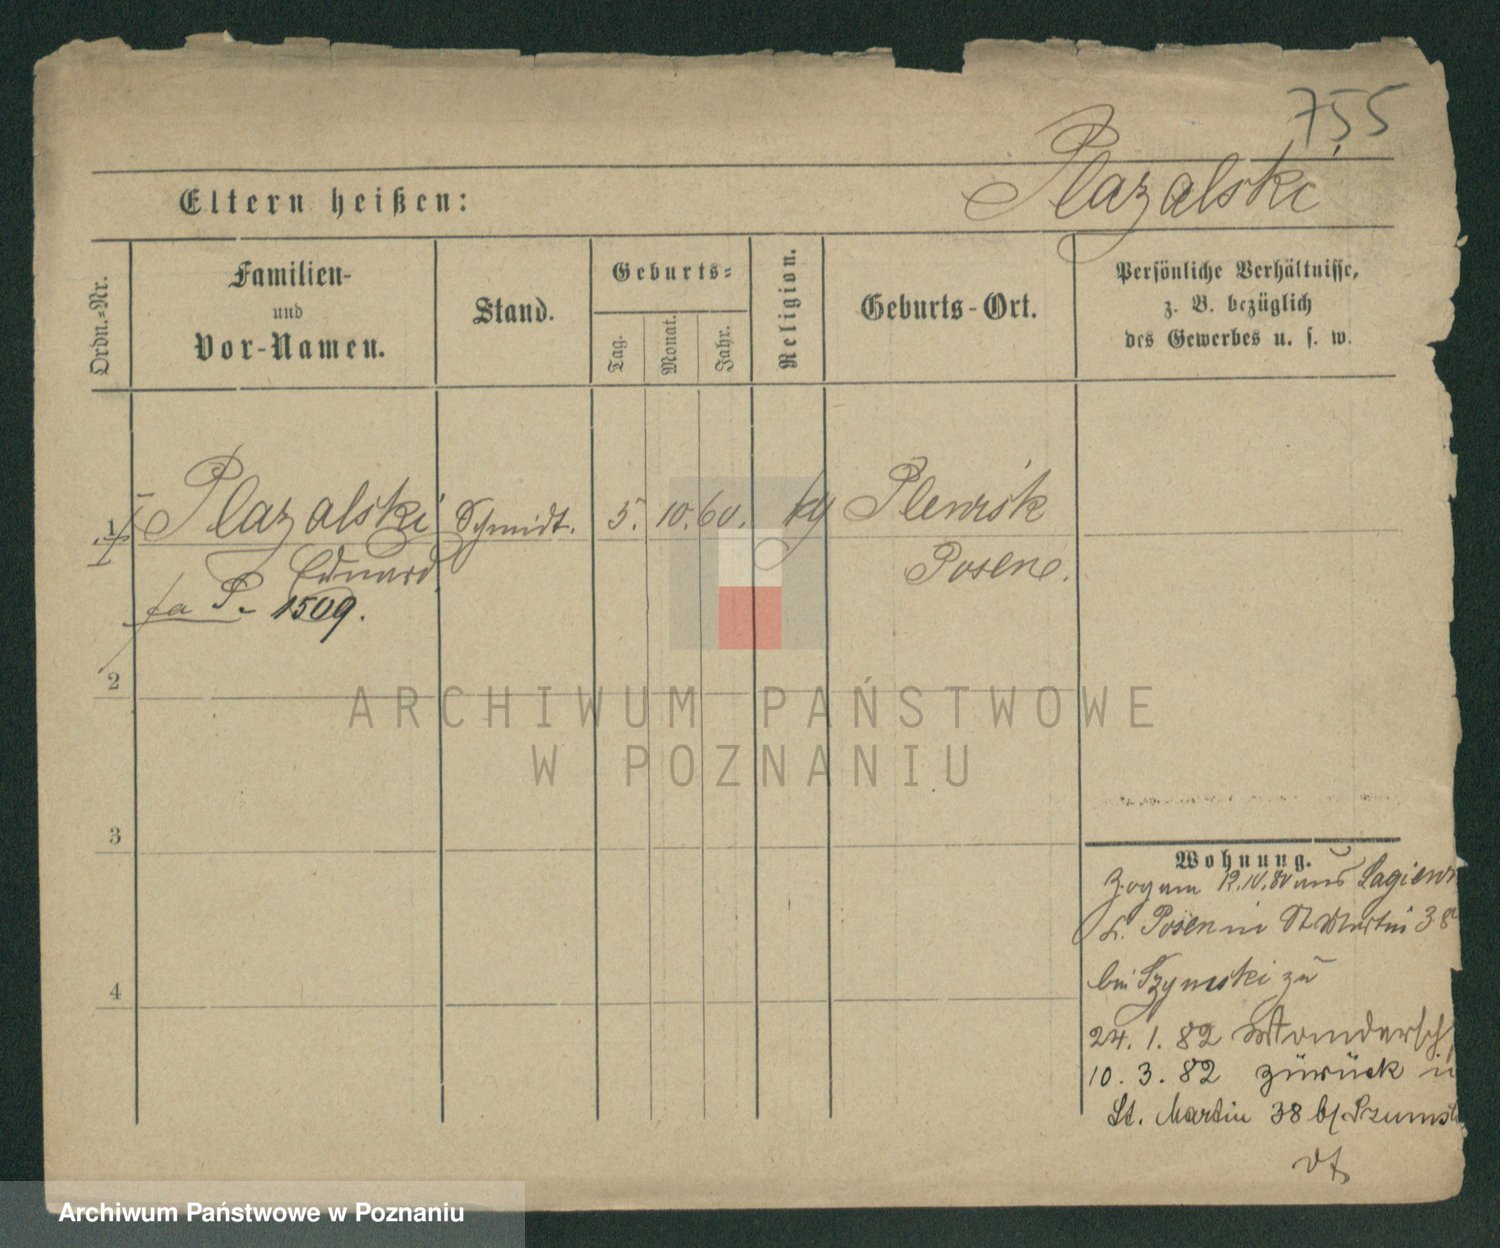 755
Plazalski
Eltern heißen:
Ordn.-Nr.
Familien-
und
Vor-Namen.
Stand.
Geburts-
Tag.
Monat.
Jahr.
Religion.
Geburts-Ort.
Persönliche Verhältnisse,
z. B. bezüglich
des Gewerbes u. s. w.
1
Plazalski Schmidt. 5. 10. 60.
Eduard
Posen.
1509.
2
ARCHIWUM PAŃSTWOWE
W POZNANIU
3
Wohnung.
Zog am 12.10.80 aus
Posen in St Martin 38
bei zu
4
24. 1. 82
10. 3. 82 zurück
St. Martin 38 b/.
Archiwum Państwowe w Poznaniu